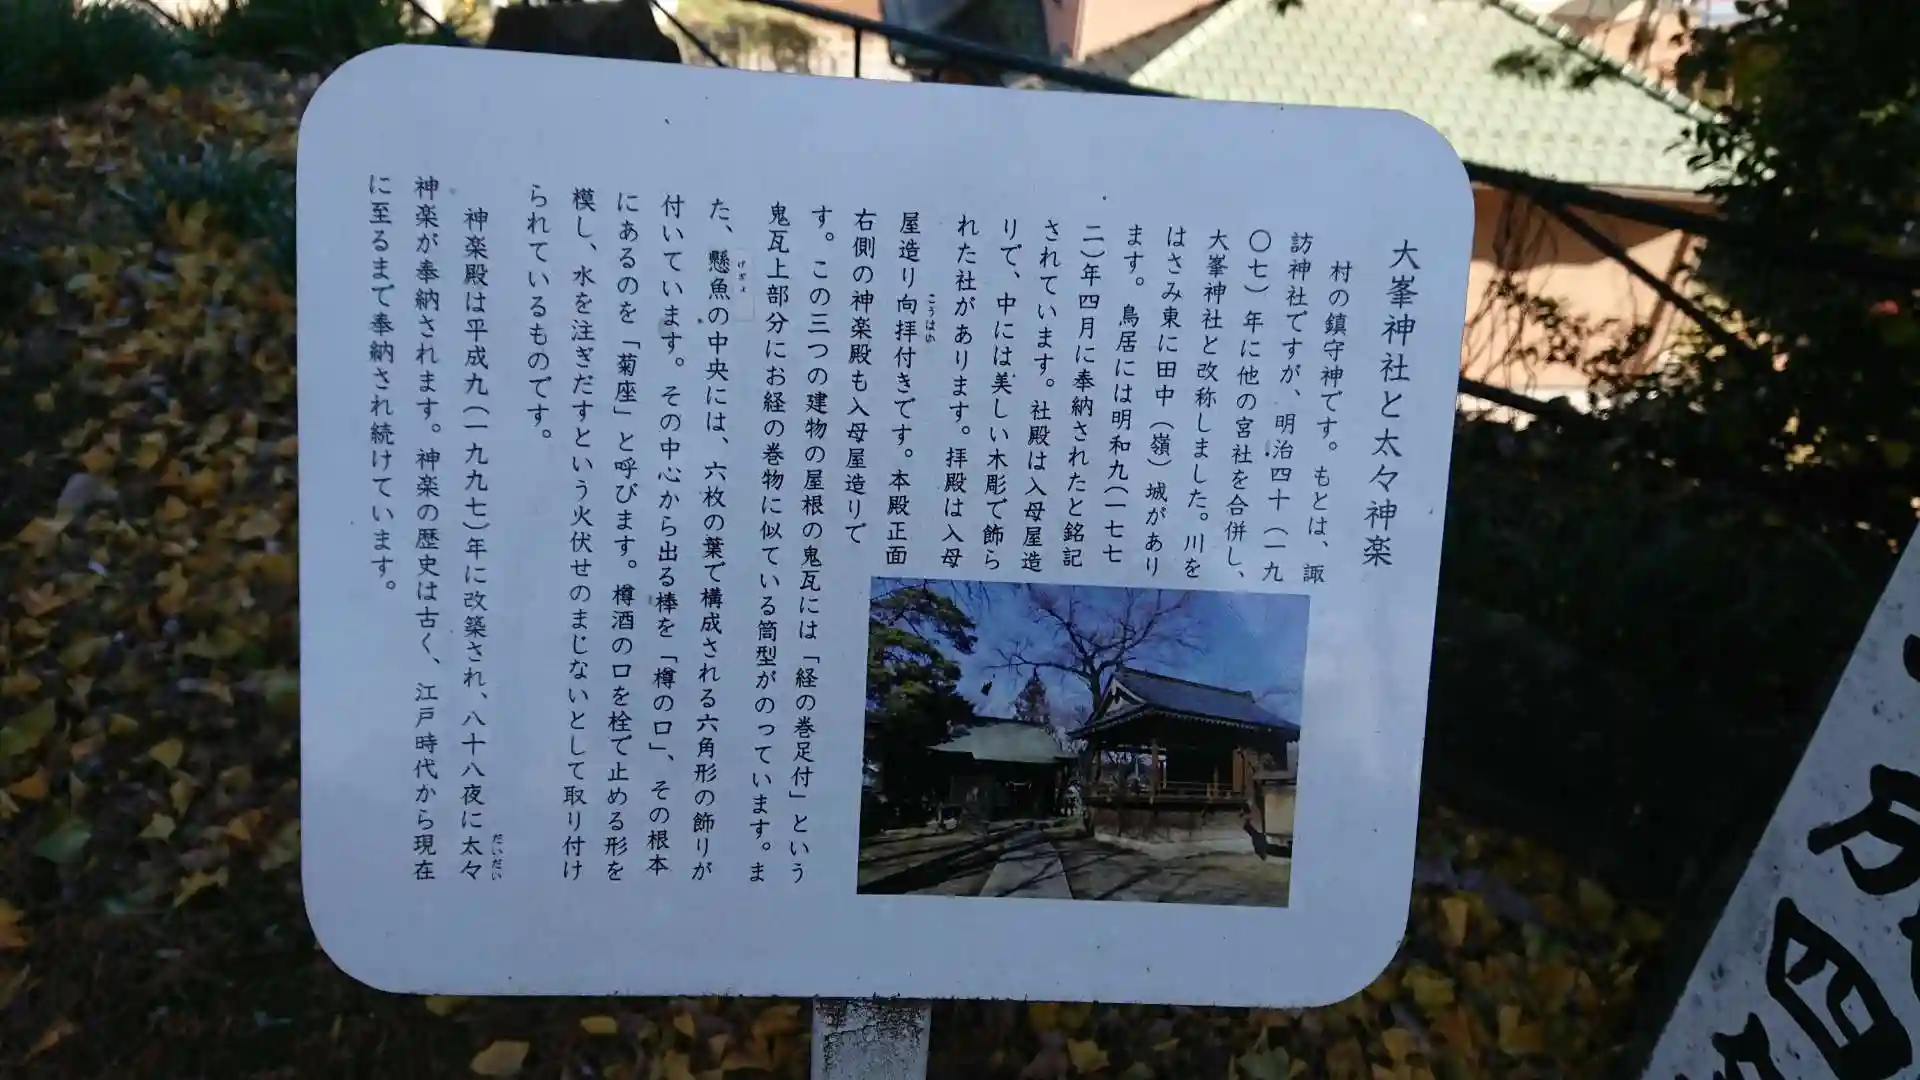 大峯神社と太々神楽
村の鎮守神です。もとは、諏
訪神社ですが、明治四十（一九
〇七）年に他の宮社を合併し、
大峯神社と改称しました。川を
はさみ東に田中（嶺）城があり
ます。鳥居には明和九（一七七
二）年四月に奉納されたと銘記
されています。社殿は入母屋造
りで、中には美しい木彫で飾ら
れた社があります。拝殿は入母
屋造り向拝付きです。本殿正面
こうはい
右側の神楽殿も入母屋造りで
す。この三つの建物の屋根の鬼瓦には「経の巻足付」という
鬼瓦上部分にお経の巻物に似ている筒型がのっています。ま
た、懸魚の中央には、六枚の葉で構成される六角形の飾りが
げぎょ
付いています。その中心から出る棒を「樽の口」、その根本
にあるのを「菊座」と呼びます。樽酒の口を栓で止める形を
模し、水を注ぎだすという火伏せのまじないとして取り付け
られているものです。
神楽殿は平成九（一九九七）年に改築され、八十八夜に太々
だいだい
神楽が奉納されます。神楽の歴史は古く、江戸時代から現在
に至るまで奉納され続けています。